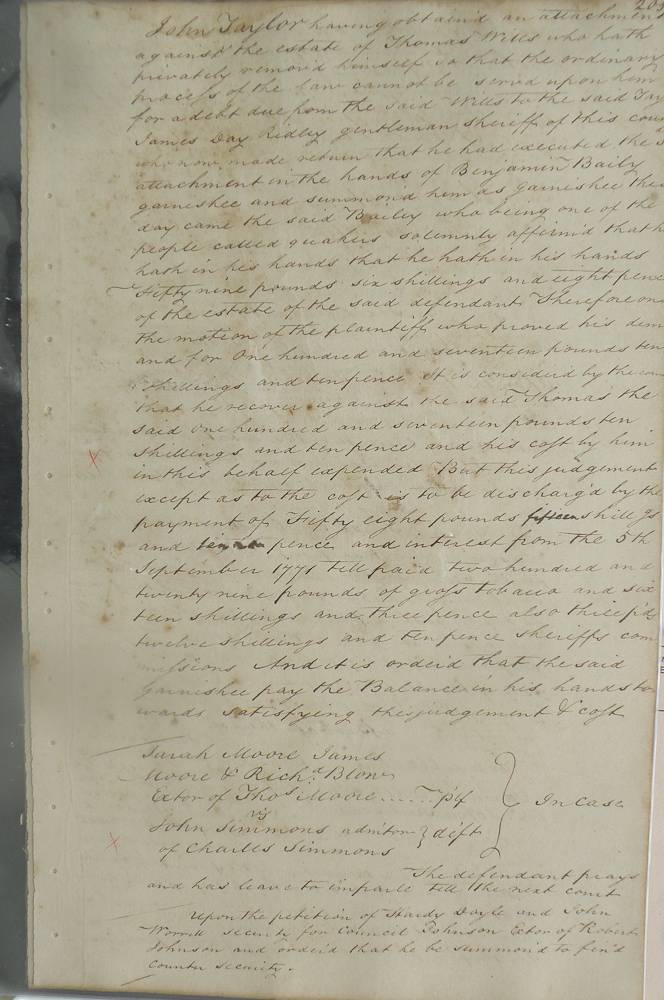 209
John Taylor having obtain'd an attachment
against the estate of Thomas Wills who hath
privately remov'd himself so that the ordinary
process of the law cannot be serv'd upon him
for a debt due from the said Wills to the said Tay
James Day Ridley gentleman sheriff of this coun
who now made return that he had executed the s
attachment in the hands of Benjamin Baily
garnishee and summon'd him as garnishee this
day came the said Bailey who being one of the
people called quakers solemnly affirm'd that h
hath in his hands that he hath in his hands
Fifty nine pounds six shillings and eight pence
of the estate of the said defendant Therefore on
the motion of the plaintiff who proved his dem
and for One hundred and seventeen pounds ten
shillings and ten pence It is consider'd by the cou
that he recover against the said Thomas the
said one hundred and seventeen pounds ten
shillings and ten pence and his cost by him
in this behalf expended But this judgement
except as to the cost is to be discharg'd by the
payment of Fifty eight pounds fifteen shill'gs
and pence and interest from the 5th
September 1771 till paid two hundred and
twenty nine pounds of gross tobacco and six
teen shillings and three pence also three p'ds
twelve shillings and ten pence sheriffs com
missions And it is order'd that the said
garnishee pay the Balance in his hands to
wards satisfying this judgement & cost
Sarah Moore James
Moore & Rich.d Blow
Extor of Thos Moore ..... pl'f
In Case
vs
John Simmons admitor } deft
of Charles Simmons
The defendant prays
and has leave to imparle till the next court
Upon the petition of Hardy Doyle and John
Worrell security for Council Johnson Extor of Robert
Johnson and order'd that he be summon'd to find
counter security.